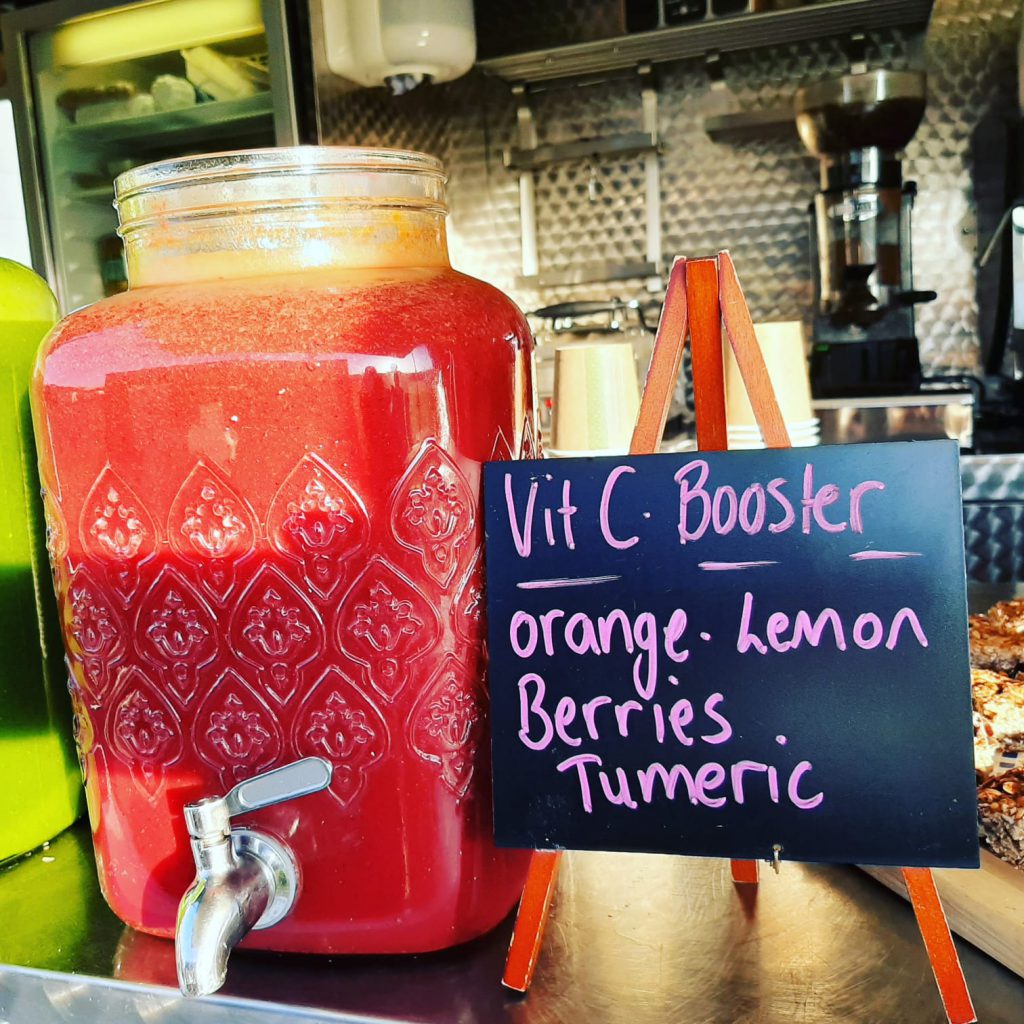 Vit C. Booster
orange. Lemon
Berries.
Tumeric